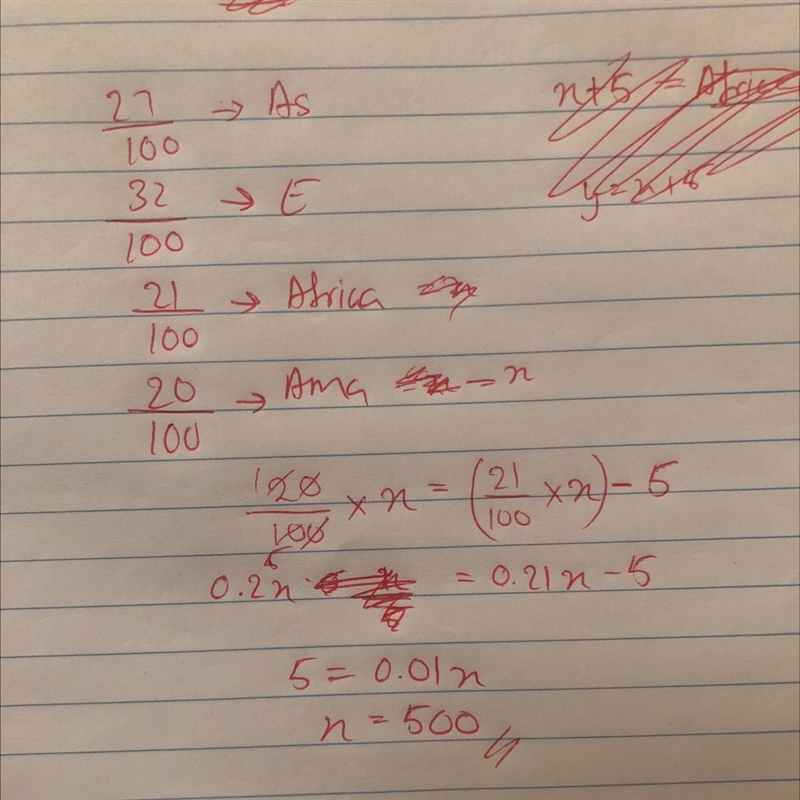 27/100 → As
x+5 = Africa
y=x+5
32/100 → E
21/100 → Africa
20/100 → Ama - x
20/100 × x = (21/100 × x) - 5
0.2x = 0.21x - 5
5 = 0.01x
x = 500